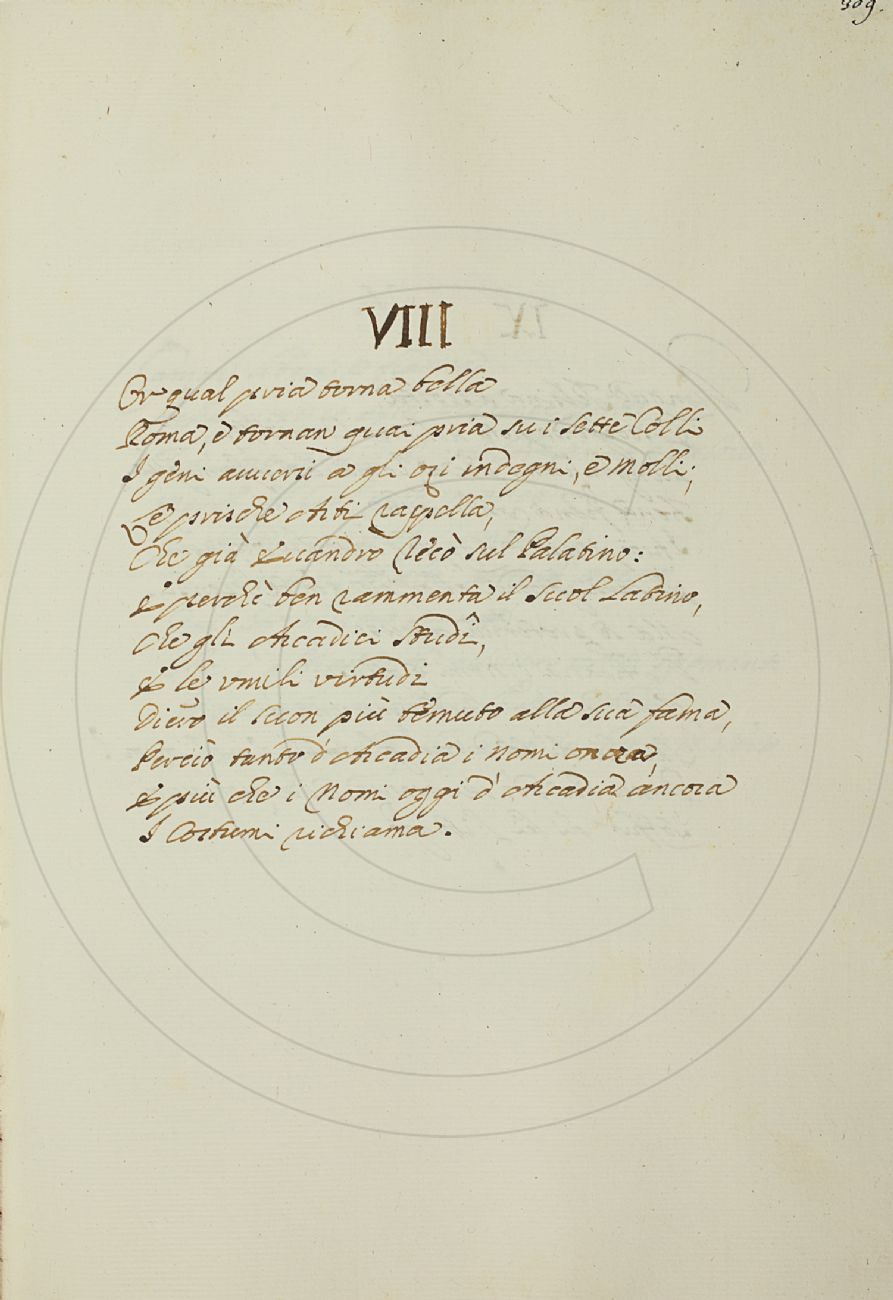 309.
VIII
Or qual pria torna bella
Roma, e tornan quai pria su i sette Colli
I geni avversi a gli ozi indegni, e molli;
Le prische Arti rappella,
Che già Evandro recò sul Palatino:
E perchè ben rammenta il suol Latino,
Che gli Arcadici Studî,
E le umili virtudi
Diero il suon più temuto alla sua fama,
Perciò tanto d'Arcadia i nomi onora,
E più che i Nomi oggi d'Arcadia ancora
I Costumi richiama.